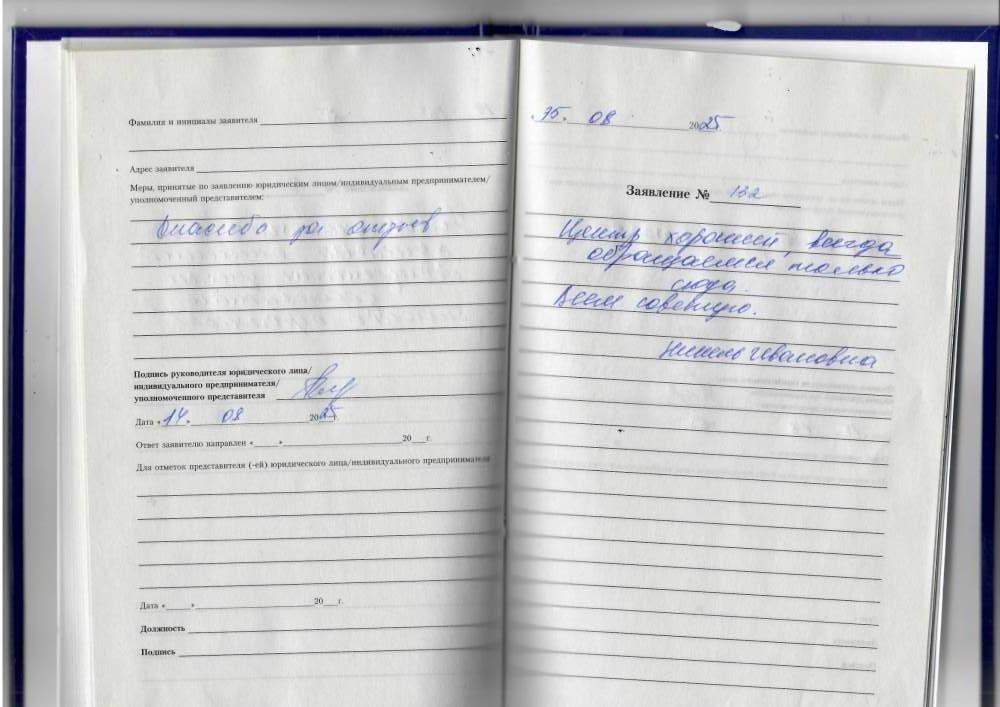 Фамилия и инициалы заявителя
Адрес заявителя
Меры, принятые по заявлению юридическим лицом/индивидуальным предпринимателем/
уполномоченный представителем:
Спасибо за отзыв
Подпись руководителя юридического лица/
индивидуального предпринимателя/
уполномоченного представителя
Дата «14» 08 2025 г.
Ответ заявителю направлен «      » 20    г.
Для отметок представителя (-ей) юридического лица/индивидуального предпринимателя
Дата «      » 20    г.
Должность
Подпись
«15» 08 2025
Заявление № 132
Центр хороший, всегда
обращаемся только
сюда.
Всем советую.
Ивановна